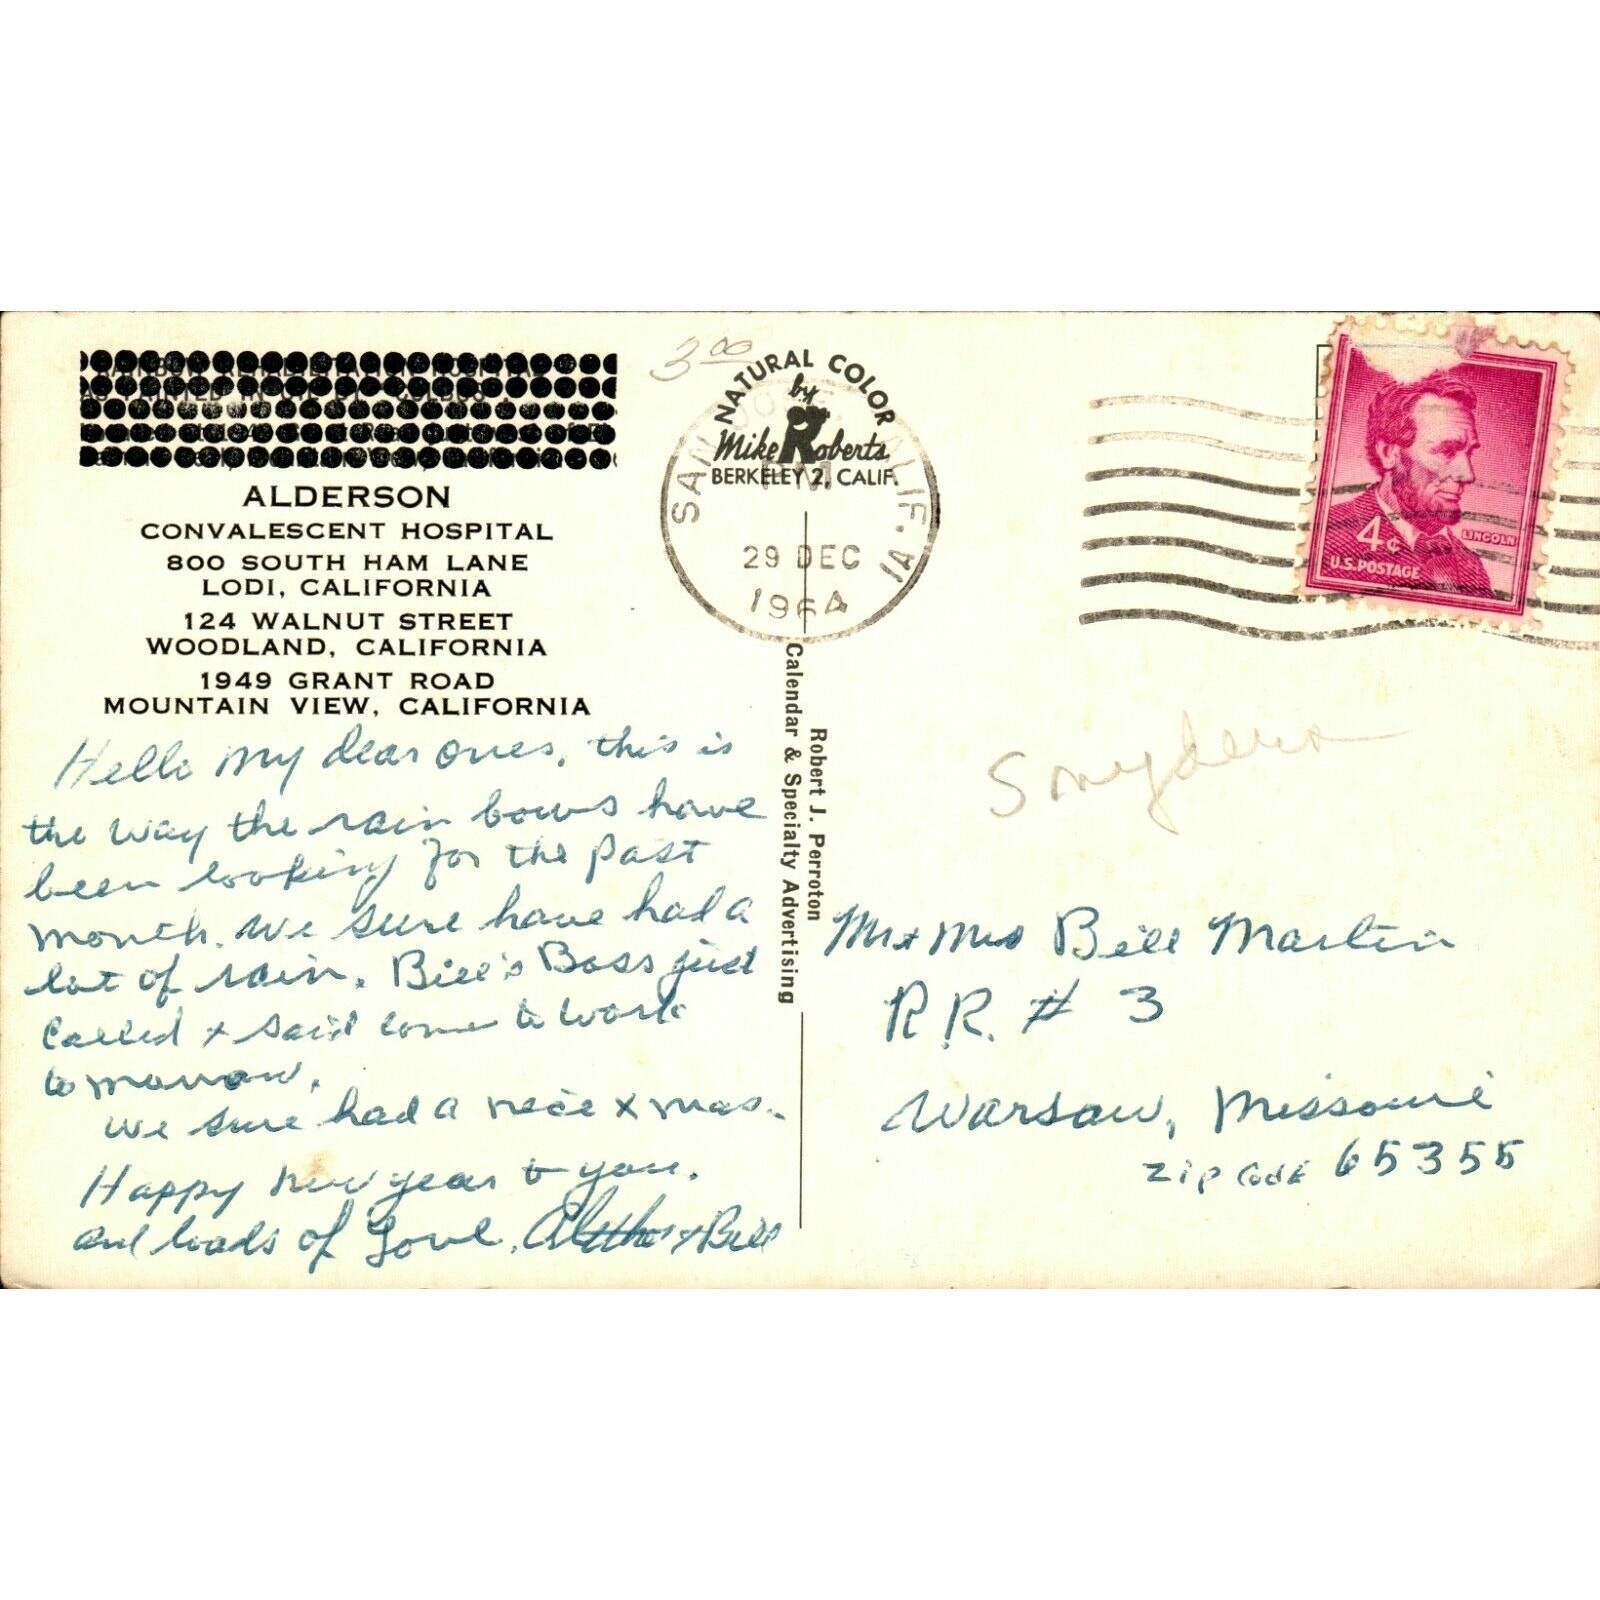 ALDERSON
CONVALESCENT HOSPITAL
800 SOUTH HAM LANE
LODI, CALIFORNIA
124 WALNUT STREET
WOODLAND, CALIFORNIA
1949 GRANT ROAD
MOUNTAIN VIEW, CALIFORNIA
Hello my dear ones, this is
the way the rain bows have
been looking for the past
month. We sure have had a
lot of rain. Bill's Boss just
called + said come to work
tomorrow.
We sure had a nice xmas.
Happy new year to you.
and loads of Love. + Bill
3.00
NATURAL COLOR
by
Mike Roberts
BERKELEY 2, CALIF.
SAN CALIF. 
29 DEC
1964
Robert J. Perroton
Calendar & Specialty Advertising
4¢
LINCOLN
U.S. POSTAGE
Snyders
Mr + Mrs Bill Martin
R.R. # 3
Warsaw, Missouri
Zip Code 65355